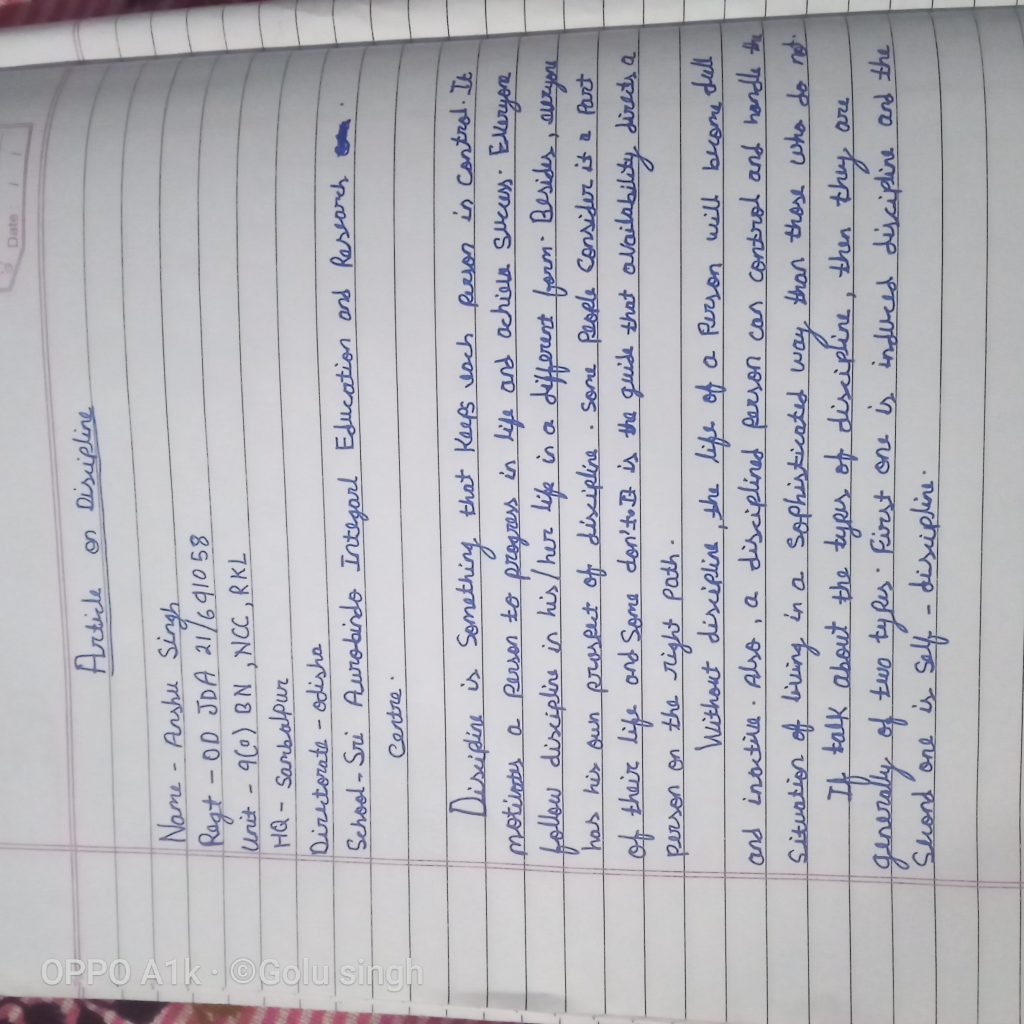 Date / /
Article on Discipline
Name - Anshu Singh
Regt - OD JDA 21/691058
Unit - 9(O) BN, NCC, RKL
HQ - Sambalpur
Directorate - odisha
School - Sri Aurobindo Integral Education and Research
Centre.
Discipline is Something that Keeps each person is control. It
motivates a Person to progress in life and achieve Success. Everyone
follow discipline in his/her life in a different form. Besides, everyone
has his own prospect of discipline. Some People Consider it a Part
of their life and Some don't. It is the guide that availability directs a
person on the right path.
Without discipline, the life of a Person will become dull
and inactive. Also, a disciplined person can control and handle the
Situation of living in a Sophisticated way than those who do not.
If talk about the types of discipline, then they are
generally of two types. First one is induced discipline and the
Second one is Self-discipline.
OPPO A1k · ©Golu singh